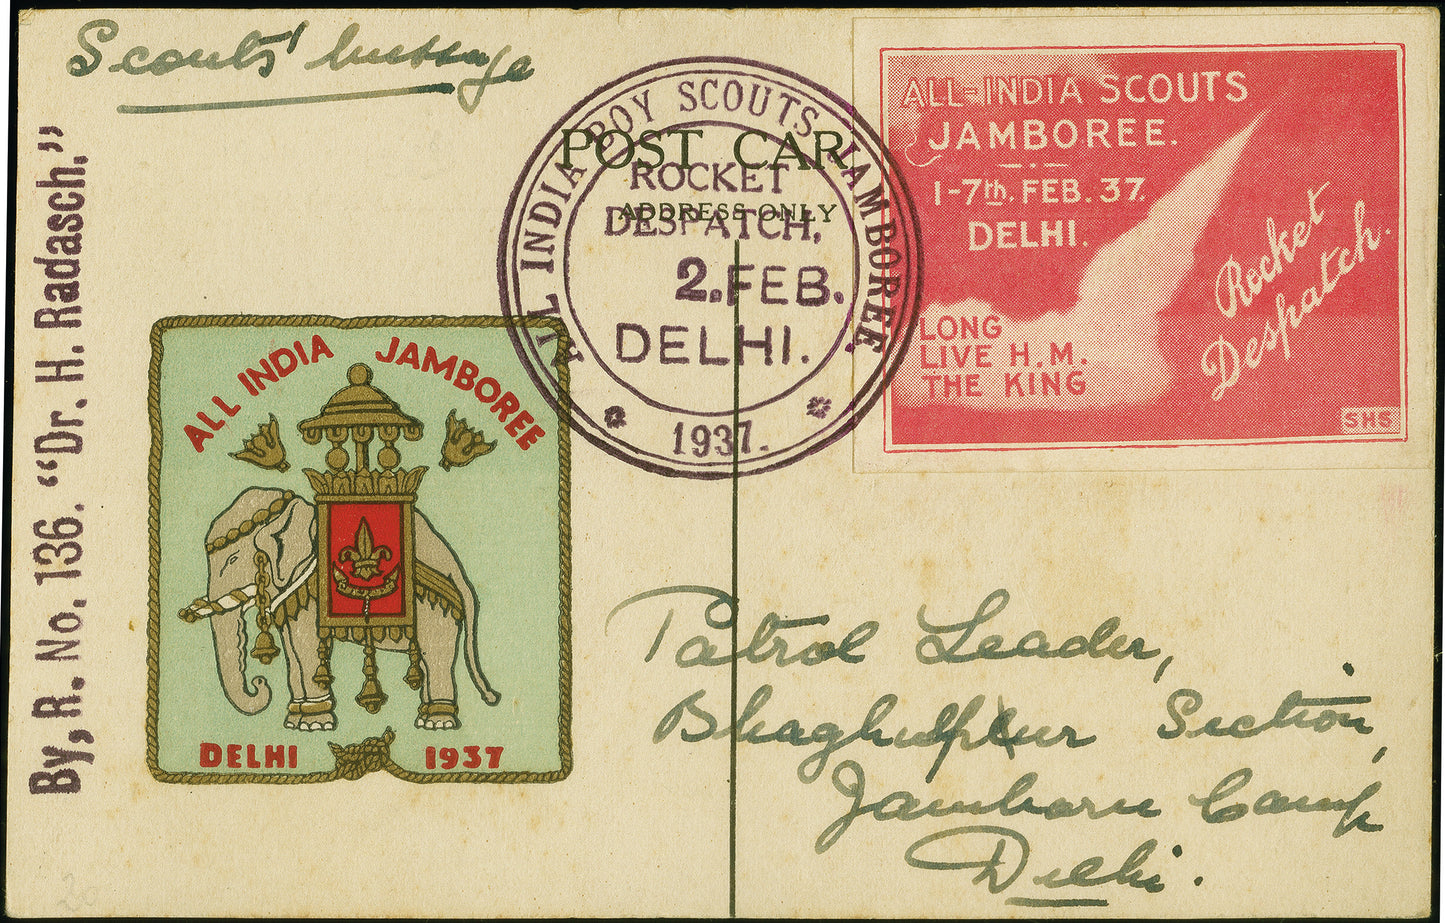 Scouts' Message
By, R. No. 136. "Dr. H. Radasch."
POST CAR
ADDRESS ONLY
ALL INDIA BOY SCOUTS JAMBOREE.
ROCKET
DESPATCH,
2. FEB.
DELHI.
1937.
ALL-INDIA SCOUTS
JAMBOREE.
1-7th. FEB. 37.
DELHI.
LONG
LIVE H.M.
THE KING
Rocket
Despatch.
SHS
ALL INDIA JAMBOREE
DELHI 1937
Patrol Leader,
Bhagulpur Section,
Jamboree Camp
Delhi.